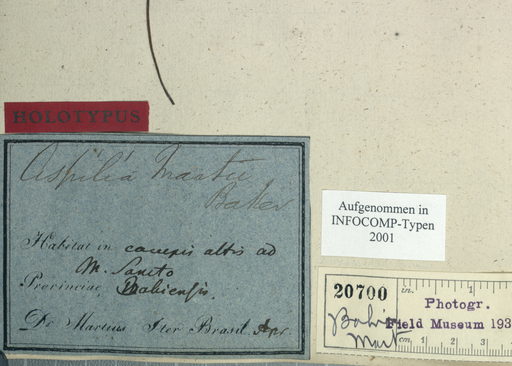 HOLOTYPUS
Aspilia Martii
Baker
Habitat in campis altis ad
M. Sancto
Provinciae, Bahiensis.
Dr Martius Iter Brasil. Apr.
Aufgenommen in
INFOCOMP-Typen
2001
20700 in. 1
Photogr.
Bahi Field Museum 193
Mart cm. 1 2 3